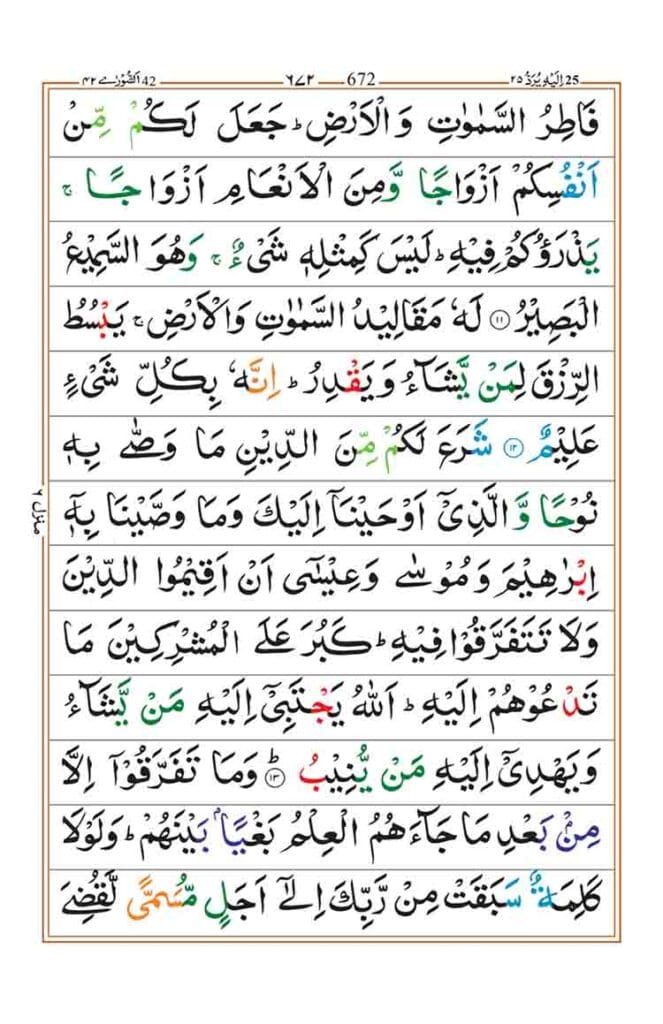 42 اَلشُّوْرٰے ٤٢
٦٧٢ 672
25 اِلَيْهِ يُرَدُّ ٢٥
فَاطِرُ السَّمٰوٰتِ وَالْاَرْضِ ؕ جَعَلَ لَكُمْ مِّنْ
اَنْفُسِكُمْ اَزْوَاجًا وَّمِنَ الْاَنْعَامِ اَزْوَاجًا ۚ
يَذْرَؤُكُمْ فِيْهِ ؕ لَيْسَ كَمِثْلِهٖ شَیْءٌ ۚ وَهُوَ السَّمِيْعُ
الْبَصِيْرُ ۝۱۱ لَهٗ مَقَالِيْدُ السَّمٰوٰتِ وَالْاَرْضِ ۚ يَبْسُطُ
الرِّزْقَ لِمَنْ يَّشَآءُ وَيَقْدِرُ ؕ اِنَّهٗ بِكُلِّ شَیْءٍ
عَلِيْمٌ ۝۱۲ شَرَعَ لَكُمْ مِّنَ الدِّيْنِ مَا وَصّٰی بِهٖ
نُوْحًا وَّالَّذِیْۤ اَوْحَيْنَاۤ اِلَيْكَ وَمَا وَصَّيْنَا بِهٖۤ
اِبْرٰهِيْمَ وَمُوْسٰی وَعِيْسٰۤی اَنْ اَقِيْمُوا الدِّيْنَ
وَلَا تَتَفَرَّقُوْا فِيْهِ ؕ كَبُرَ عَلَی الْمُشْرِكِيْنَ مَا
تَدْعُوْهُمْ اِلَيْهِ ؕ اَللّٰهُ يَجْتَبِیْۤ اِلَيْهِ مَنْ يَّشَآءُ
وَيَهْدِیْۤ اِلَيْهِ مَنْ يُّنِيْبُ ؕ۝۱۳ وَمَا تَفَرَّقُوْۤا اِلَّا
مِنْۢ بَعْدِ مَا جَآءَهُمُ الْعِلْمُ بَغْيًاۢ بَيْنَهُمْ ؕ وَلَوْلَا
كَلِمَةٌ سَبَقَتْ مِنْ رَّبِّكَ اِلٰۤی اَجَلٍ مُّسَمًّی لَّقُضِیَ
منزل ٦